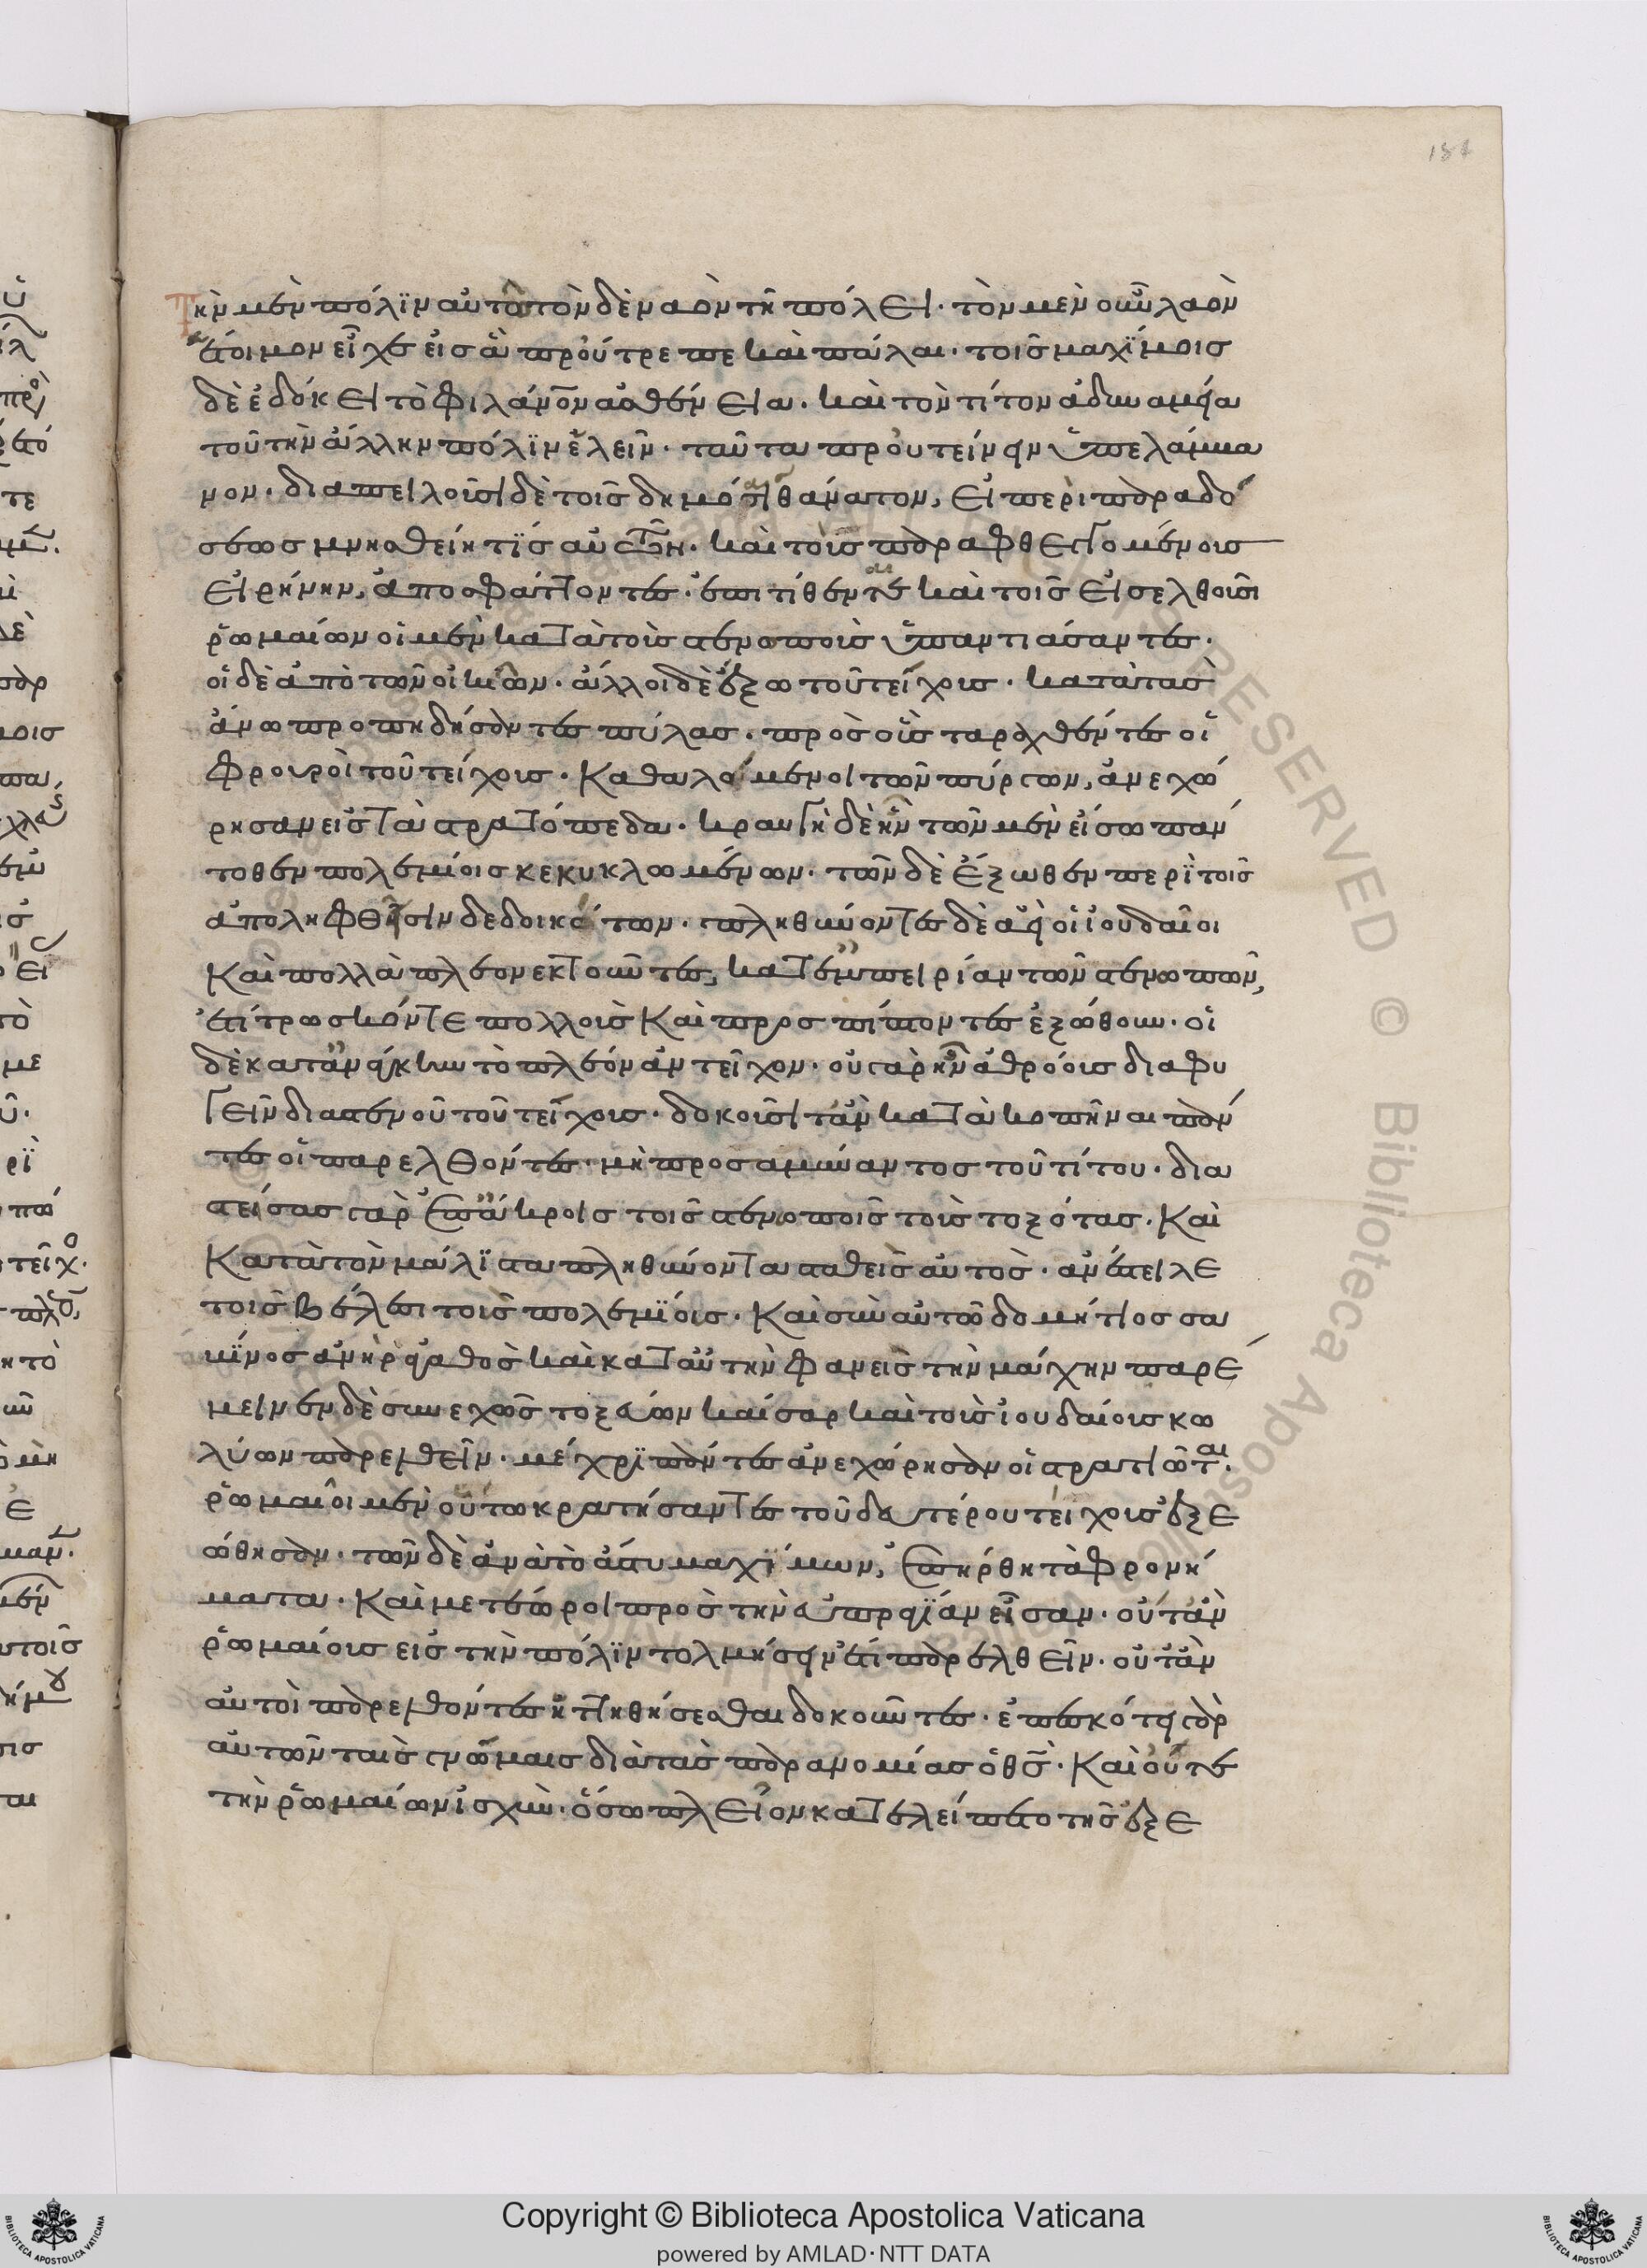 187
Τὴν μὲν πόλϊν αὐτῶ τὸν δὲ ναὸν τῆ πόλει· τὸν μὲν οὖν λαὸν
ἕτοιμον εἶχεν εἰς ἃ προύτρεπε καὶ πάλαι· τοῖς μαχΐμοις
δὲ ἐδόκει τὸ φιλάνον ἀσθένεια· καὶ τὸν τίτον ἀδυναμία
τοῦ τὴν ἄλλην πόλϊν ἑλεῖν· ταῦτα προυτείνειν ὑπελάμβα
νον· διαπειλοῦσι δὲ τοῖς δημόταις θάνατον, εἰ περὶ παραδό
σεως μνησθείη τϊς αὐτῶν· καὶ τοὺς παραφθεγγομένους
εἰρήνην, ἀποσφάττοντες· ἐπιτίθενται καὶ τοῖς εἰσελθοῦσι
ῥωμαίων οἱ μὲν κατὰ τοὺς στενωποὺς ὑπαντιάσαντες·
οἱ δὲ ἀπὸ τῶν οἰκιῶν· ἄλλοι δὲ ἔξω τοῦ τείχους· κατὰ τὰς
ἄνω προπηδήσαντες πύλας· πρὸς οὓς ταραχθέντες οἱ
φρουροὶ τοῦ τείχους· καθαλόμενοι τῶν πύργων, ἀνεχώ
ρησαν εἰς τὰ στρατόπεδα· κραυγὴ δὲ ἦν τῶν μὲν εἴσω πάν
τοθεν πολεμίοις κεκυκλωμένων· τῶν δὲ ἔξωθεν περῒ τοῖς
ἀποληφθεῖσιν δεδοικότων· πληθύνοντες δὲ ἀεὶ οἱ ἰουδαῖοι
καὶ πολλὰ πλεονεκτοῦντες, κατ' ἐμπειρίαν τῶν στενωπῶν,
ἐτίτρωσκόν τε πολλοὺς καὶ προσπίπτοντες ἐξώθουν· οἱ
δὲ κατ' ἀνάγκην τὸ πλέον ἀντεῖχον· οὐ γὰρ ἦν ἀθρόους διαφυ
γεῖν διὰ στενοῦ τοῦ τείχους· δοκοῦσί τ' ἂν κατὰ κοπῆναι πάν
τες οἱ παρελθόντες· μὴ προσαμύναντος τοῦ τίτου· δια
στείσας γὰρ ἐπ' ἄκροις τοῖς στενωποῖς τοὺς τοξότας· καὶ
κατὰ τὸν μάλϊστα πληθύοντα σταθεὶς αὐτὸς· ἀνέστειλε
τοῖς βέλεσι τοὺς πολεμΐους· καὶ σὺν αὐτῶ δομήτιος σα
βΐνος ἀνὴρ ἀγαθὸς καὶ κατ' αὐτὴν φανεὶς τὴν μάχην παρέ
μεινεν δὲ συνεχῶς τοξεύων καίσαρ καὶ τοὺς ἰουδαίους κω
λύων παρελθεῖν· μέχρϊ πάντες ἀνεχώρησαν οἱ στρατιῶται·
ῥωμαῖοι μὲν οὕτω κρατήσαντες τοῦ δευτέρου τείχους ἐξε
ώθησαν· τῶν δὲ ἀνὰ τὸ ἄστυ μαχΐμων, ἐπήρθη τὰ φρονή
ματα· καὶ μετέωροι πρὸς τὴν εὐπραγΐαν εἶσαν· οὔτ' ἂν
ῥωμαίους εἰς τὴν πόλϊν τολμήσειν ἔτι παρελθεῖν· οὔτ' ἂν
αὐτοὶ παρελθόντες ἡττηθήσεσθαι δοκοῦντες· ἐπεσκότει γὰρ
αὐτῶν ταῖς γνώμαις διὰ τὰς παρανομίας ὁ θς· καὶ οὔτε
τὴν ῥωμαίων ἰσχὺν· ὅσω πλεῖον κατελείπετο τῆς ἐξε
Copyright © Biblioteca Apostolica Vaticana
powered by AMLAD·NTT DATA